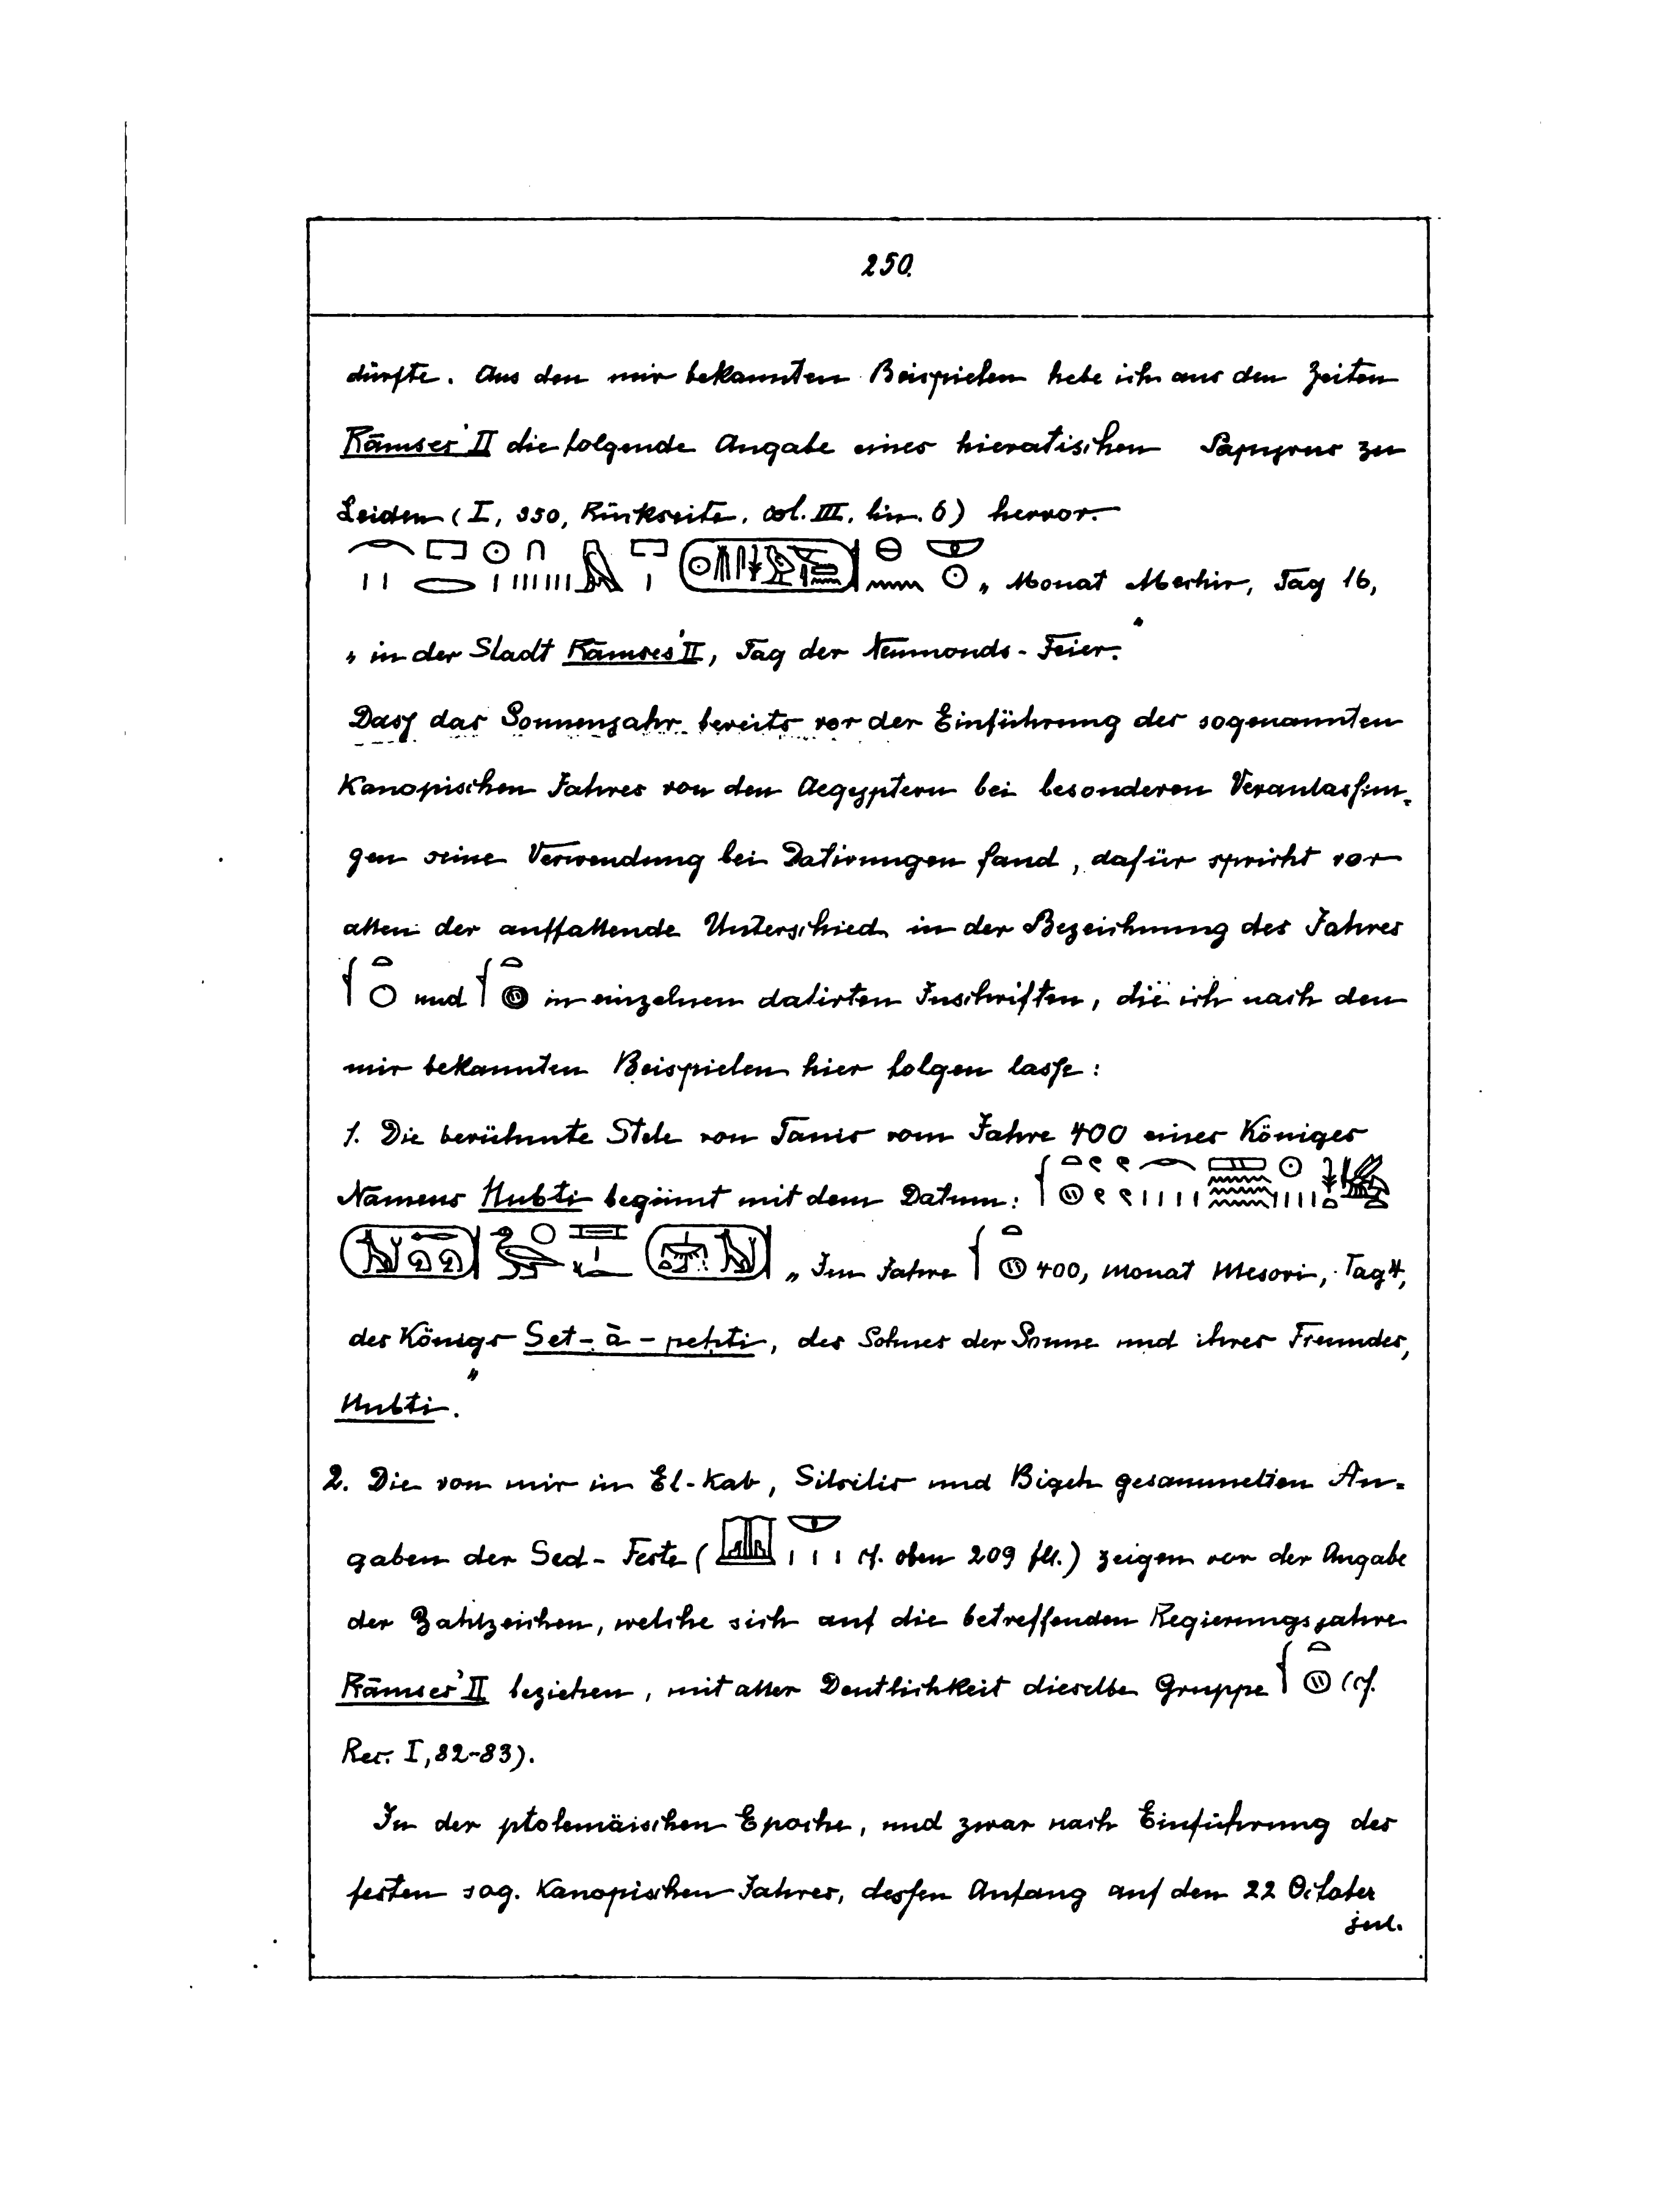 250.
dürfte. Aus den mir bekannten Beispielen hebe ich aus den Zeiten
Rāmses' II die folgende Angabe eines hieratischen Papyrus zu
Leiden (I, 350, Rückseite, col. III, lin. 6) hervor.
„ Monat Mechir, Tag 16,
„ in der Stadt Rāmses' II, Tag der Neumonds-Feier."
Dass das Sonnenjahr bereits vor der Einführung des sogenannten
Kanopischen Jahres von den Aegyptern bei besonderen Veranlassun-
gen seine Verwendung bei Datirungen fand, dafür spricht vor
allen der auffallende Unterschied in der Bezeichnung des Jahres
und in einzelnen datirten Inschriften, die ich nach den
mir bekannten Beispielen hier folgen lasse:
1. Die berühmte Stele von Tanis vom Jahre 400 eines Königes
Namens Nubti beginnt mit dem Datum:
„ Im Jahre 400, Monat Mesori, Tag 4,
des Königs Set-ā-peḥti, des Sohnes der Sonne und ihres Freundes,
Nubti."
2. Die von mir in El-Kab, Silsilis und Bigeh gesammelten An-
gaben der Sed-Feste ( cf. oben 209 fll.) zeigen vor der Angabe
der Zahlzeichen, welche sich auf die betreffenden Regierungsjahre
Rāmses' II beziehen, mit aller Deutlichkeit dieselbe Gruppe (cf.
Rec. I, 82-83).
In der ptolemäischen Epoche, und zwar nach Einführung des
festen sog. Kanopischen Jahres, dessen Anfang auf den 22 October
jul.